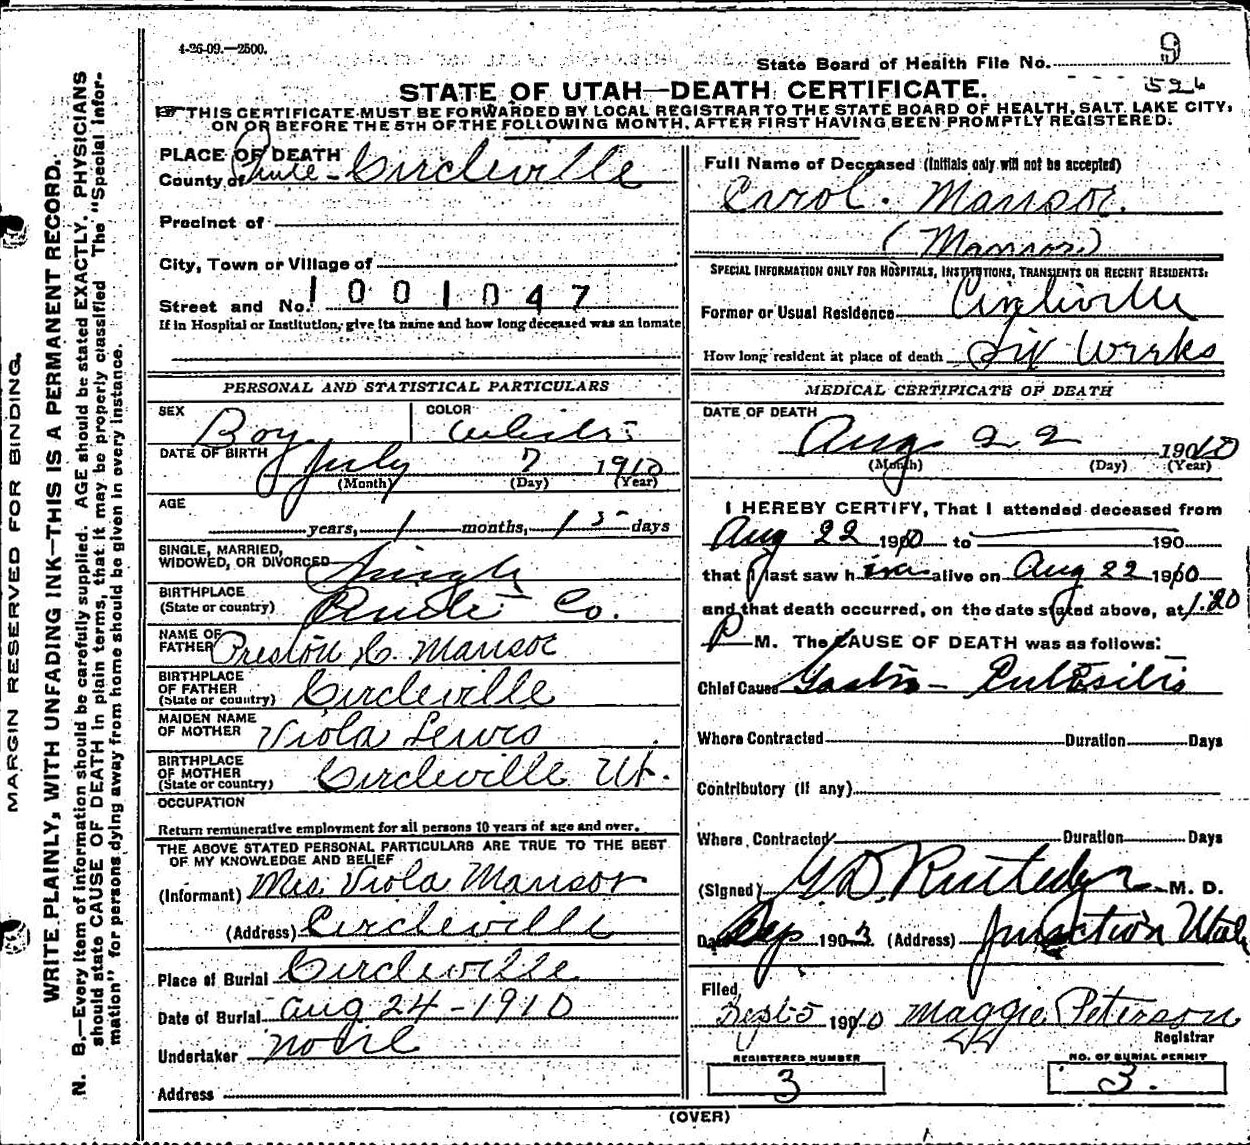 4-26-09.—2500.
State Board of Health File No. 9
526
STATE OF UTAH—DEATH CERTIFICATE.
THIS CERTIFICATE MUST BE FORWARDED BY LOCAL REGISTRAR TO THE STATE BOARD OF HEALTH, SALT LAKE CITY,
ON OR BEFORE THE 5TH OF THE FOLLOWING MONTH, AFTER FIRST HAVING BEEN PROMPTLY REGISTERED.
MARGIN RESERVED FOR BINDING.
WRITE PLAINLY, WITH UNFADING INK—THIS IS A PERMANENT RECORD.
N. B.—Every item of information should be carefully supplied. AGE should be stated EXACTLY. PHYSICIANS
should state CAUSE OF DEATH in plain terms, that it may be properly classified. The "Special Infor-
mation" for persons dying away from home should be given in every instance.
PLACE OF DEATH
County of Piute - Circleville
Precinct of
City, Town or Village of
Street and No. 1001047
If in Hospital or Institution, give its name and how long deceased was an inmate
PERSONAL AND STATISTICAL PARTICULARS
SEX Boy
COLOR White
DATE OF BIRTH July 7 1910
(Month) (Day) (Year)
AGE
years, 1 months, 15 days
SINGLE, MARRIED,
WIDOWED, OR DIVORCED Single
BIRTHPLACE
(State or country) Piute Co.
NAME OF
FATHER Preston H. Mansor
BIRTHPLACE
OF FATHER
(State or country) Circleville
MAIDEN NAME
OF MOTHER Viola Lewis
BIRTHPLACE
OF MOTHER
(State or country) Circleville Ut.
OCCUPATION
Return remunerative employment for all persons 10 years of age and over.
THE ABOVE STATED PERSONAL PARTICULARS ARE TRUE TO THE BEST
OF MY KNOWLEDGE AND BELIEF
(Informant) Mrs. Viola Mansor
(Address) Circleville
Place of Burial Circleville
Date of Burial Aug 24-1910
Undertaker None
Address
Full Name of Deceased (Initials only will not be accepted)
Carol. Mansor.
(Mansor)
SPECIAL INFORMATION ONLY FOR HOSPITALS, INSTITUTIONS, TRANSIENTS OR RECENT RESIDENTS:
Former or Usual Residence Circleville
How long resident at place of death Six Weeks
MEDICAL CERTIFICATE OF DEATH
DATE OF DEATH
Aug 22 1910
(Month) (Day) (Year)
I HEREBY CERTIFY, That I attended deceased from
Aug 22 1910 to 190
that I last saw him alive on Aug 22 1910
and that death occurred, on the date stated above, at 1.20
P M. The CAUSE OF DEATH was as follows:
Chief Cause Gastro-
Where Contracted Duration Days
Contributory (if any)
Where Contracted Duration Days
(Signed) M. D.
Date Sep 3 190 (Address) Junction Utah
Filed
Sept 5 1910 Maggie Peterson
Registrar
REGISTERED NUMBER
3
NO. OF BURIAL PERMIT
3.
(OVER)